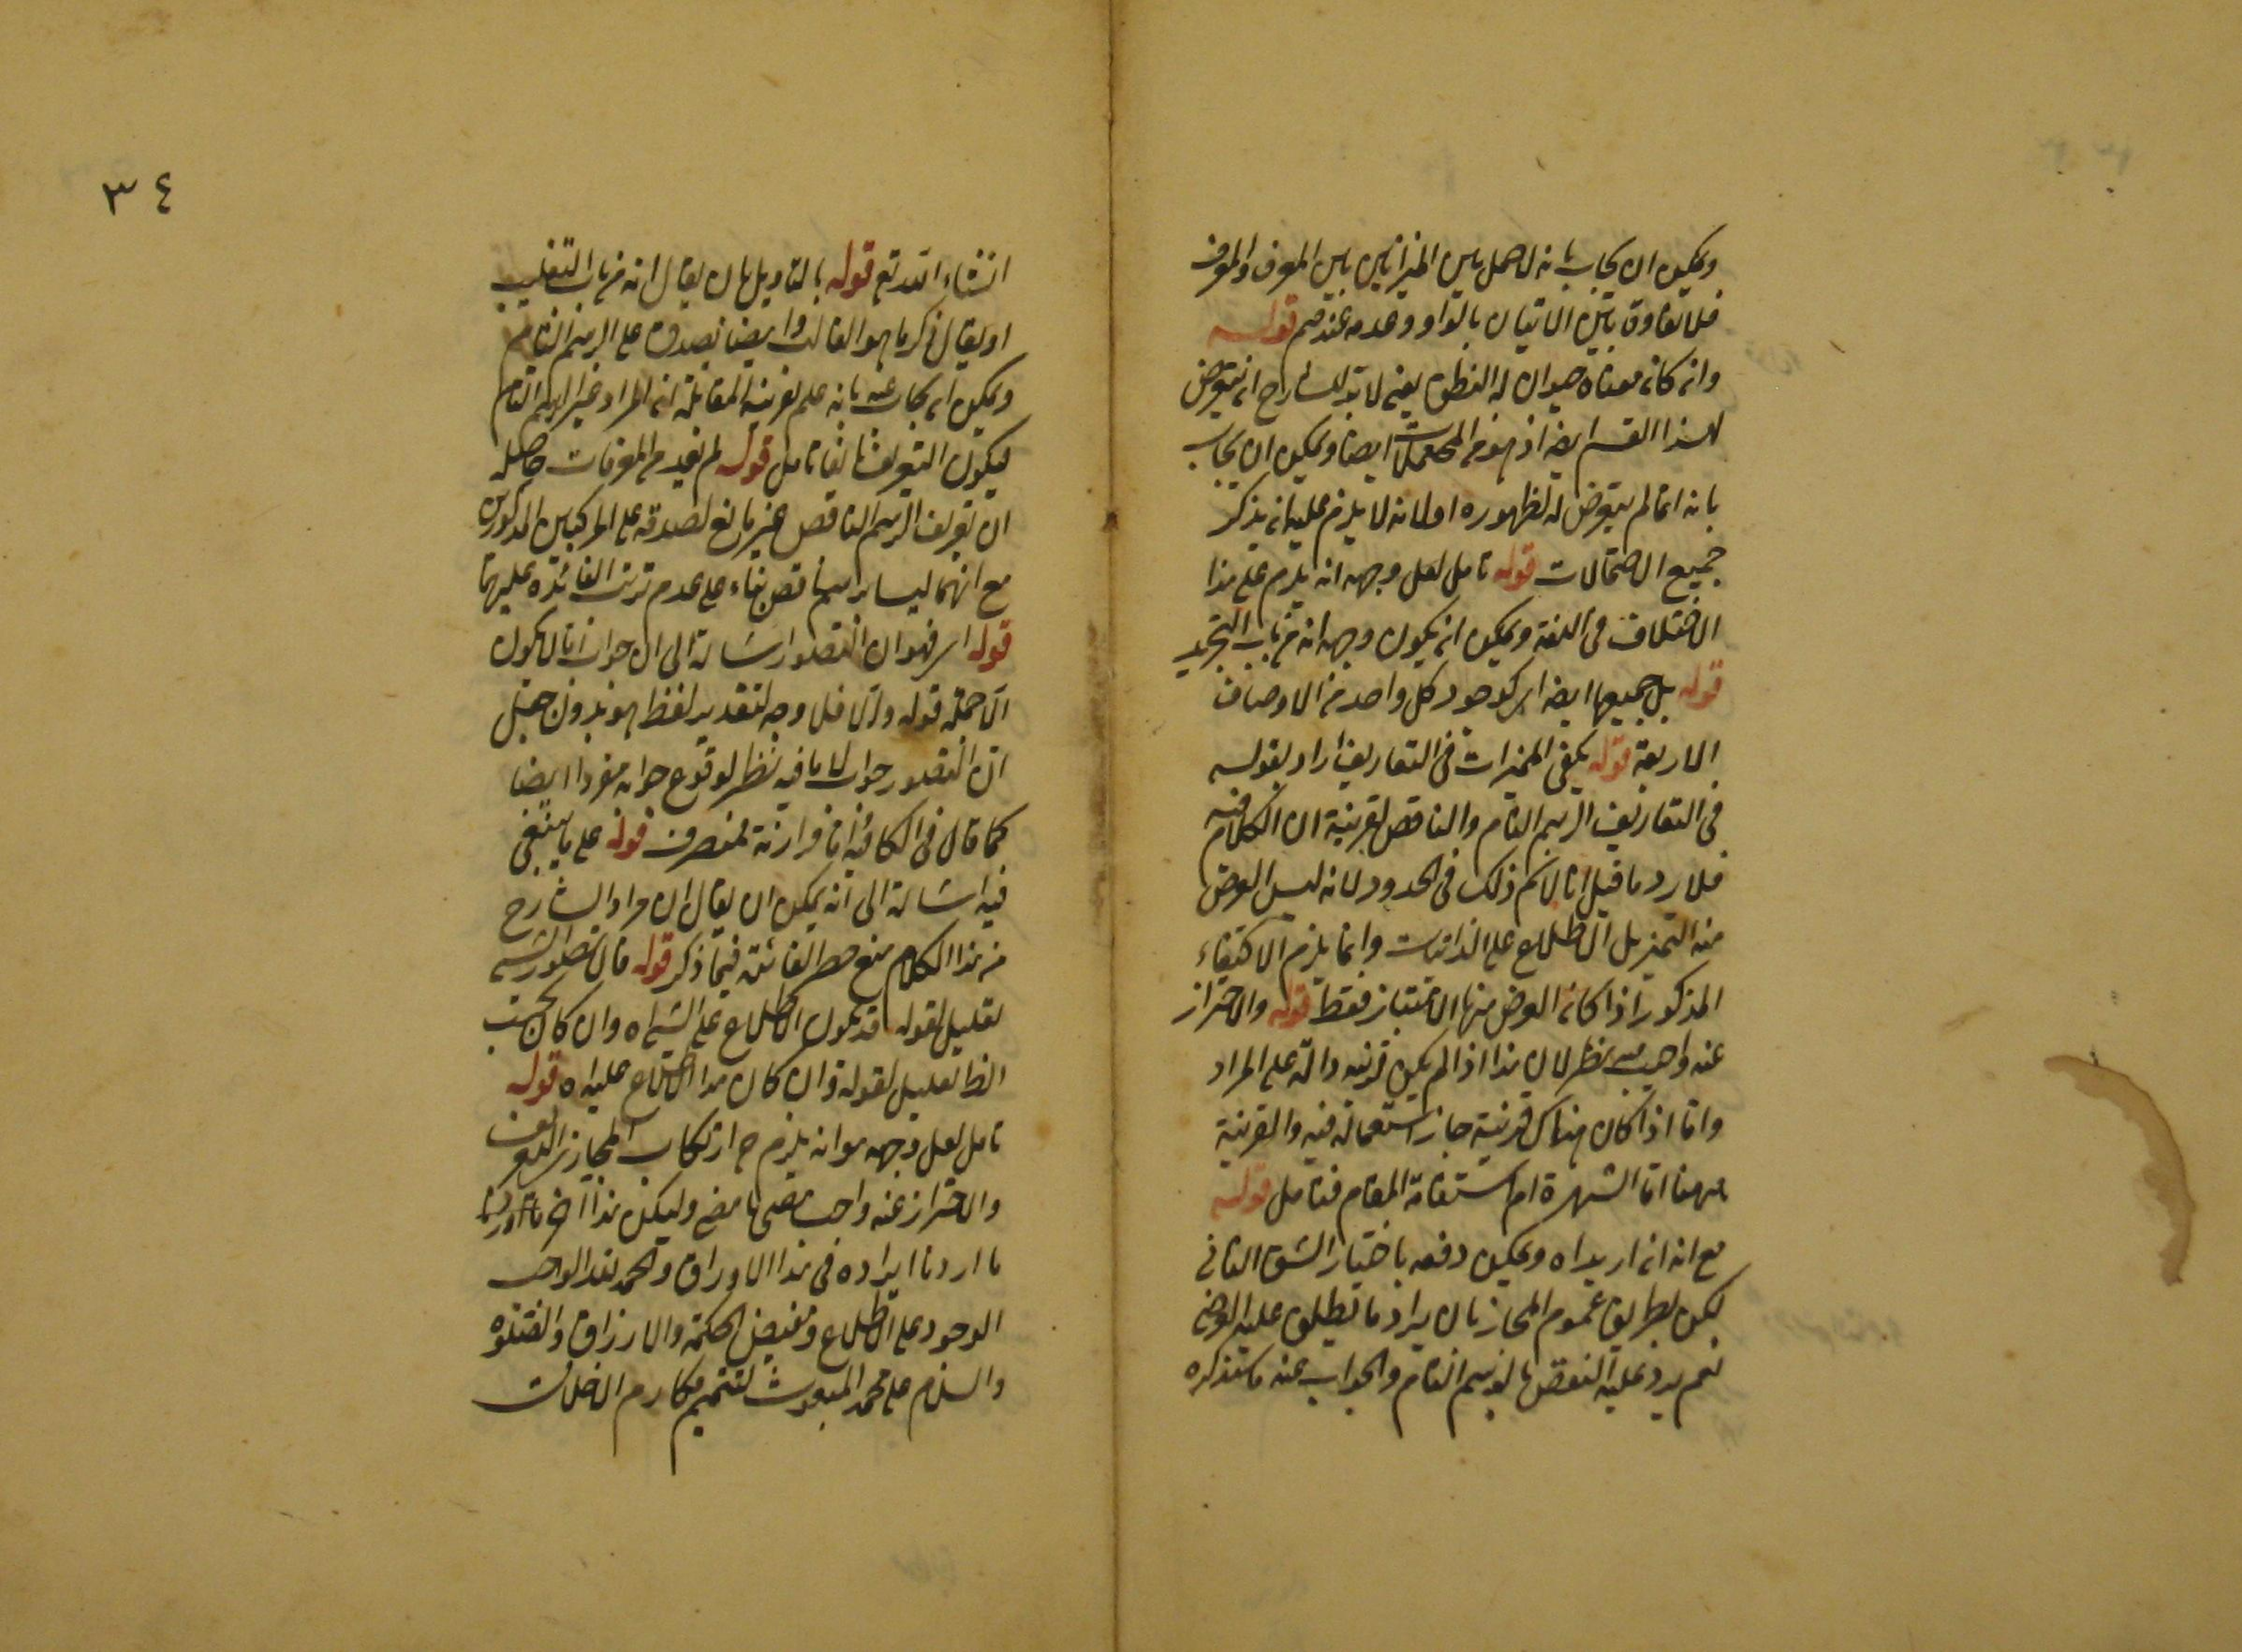 ويمكن ان يجاب بانه لا حمل بين الميزانيين بين المعرف والمعرف
فلا تفاوت بين الاتيان بالواو وعدمه عندهم قوله
وان كان معناه حيوان له النطق يعني لا بد للشارح ان يتعرض
لهذا القسم ايضا اذ هو من المحتملات ايضا ويمكن ان يجاب
بانه انما لم يتعرض له لظهوره او لانه لا يلزم عليه ان يذكر
جميع الاحتمالات قوله تامل لعل وجهه انه يلزم على هذا
الاختلاف في اللغة ويمكن ان يكون وجهه انه من باب التجريد
قوله بل جميعها ايضا اي كوجود كل واحد من الاوصاف
الاربعة قوله يكفي المميزات في التعاريف اراد بقوله
في التعاريف الرسم التام والناقص بقرينة ان الكلام فيه
فلا يرد ما قيل انا لا نم ذلك في الحدود لانه ليس الغرض
منه التميز بل الاطلاع على الذاتيات وانما يلزم الاكتفاء
المذكور اذا كان الغرض منها الامتياز فقط قوله والاحتراز
عنه واجب فيه نظر لان هذا اذا لم يكن قرينة دالة على المراد
واما اذا كان هناك قرينة جاز استعماله فيه والقرينة
ههنا اما الشهرة ام استفامة المقام فتامل قوله
مع انه ان اريد اه ويمكن دفعه باختيار الشق الثاني
لكن بطريق عموم المجاز بان يراد ما يطلق عليه
نعم يرد عليه النقض بالرسم التام والجواب عنه ما ستذكره
٣٤
انشاء الله تع قوله بالتاويل بان يقال انه من باب التغليب
او يقال ذكر ما هو الغالب وايضا يصدق على الرسم التام
ويمكن ان يجاب عنه بانه علم بقرينة المقابلة ان المراد غير الرسم التام
ليكون التعريف تامل قوله لم يعد من المعرفات حاصله
ان تعريف الرسم الناقص غير مانع لصدقه على المركبين المذكورين
مع انهما ليسا برسم ناقص بناء على عدم ترتب الفائدة عليهما
قوله اي فهو ان التصور اشارة الى ان جواب اما لا يكون
الا جملة قوله والا فلا وجه لتقدير لفظ هو بدون جعل
ان التصور جواب لاما فيه نظر لوقوع جوابه مفردا ايضا
كما قال في الكافية منصرف قوله على ما ينبغي
فيه اشارة الى انه يمكن ان يقال ان مراد الشارح
من هذا الكلام منع حصر الفائدة فيما ذكر قوله فان تصور الشيء
تعليل لقوله قد يكون الاطلاع على الشيء اه وان كان بحسب
الظ تعليل لقوله وان كان هذا الاطلاع عليه اه قوله
تامل لعل وجهه هو انه يلزم ح ارتكاب المجاز في التعريف
والاحتراز عنه واجب على ما مضى وليكن هذا آخر ما اوردنا
ما اردنا ايراده في هذا الاوراق والحمد لله الواجب
الوجود على الاطلاع ومفيض الحكمة والارزاق والصلوة
والسلام على محمد المبعوث لتتميم مكارم الاخلاق